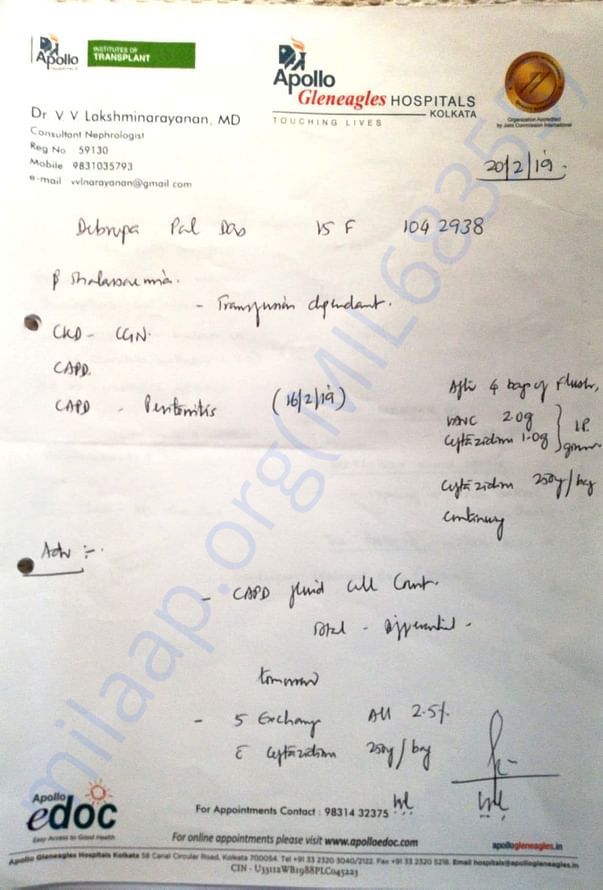 Apollo
HOSPITALS
INSTITUTES OF
TRANSPLANT
Apollo
Gleneagles HOSPITALS
KOLKATA
TOUCHING LIVES
Organization Accredited
by Joint Commission International
Dr V V Lakshminarayanan, MD
Consultant Nephrologist
Reg No 59130
Mobile 9831035793
e-mail vvlnarayanan@gmail.com
20/2/19.
Debrupa Pal Das 15 F 104 2938
β Thalassaemia.
- Transfusion dependant.
CKD - CGN.
CAPD.
CAPD - Peritonitis (16/2/19)
After 4 bag of flush,
VANC 2.0g
Ceftazidim 1.0g } I.P. given
Ceftazidim 250g/bag
continuing
Adv :-
- CAPD fluid cell count.
Total - Differential -
tomorrow
- 5 Exchange All 2.5%
c̄ Ceftazidim 250g/bag
Apollo
edoc
Easy Access to Good Health
For Appointments Contact : 98314 32375
For online appointments please visit www.apolloedoc.com
apollogleneagles.in
Apollo Gleneagles Hospitals Kolkata 58 Canal Circular Road, Kolkata 700054. Tel +91 33 2320 3040/2122. Fax +91 33 2320 5218. Email hospitals@apollogleneagles.in
CIN - U33112WB1988PLC045223
milaap.org(MIL68355)